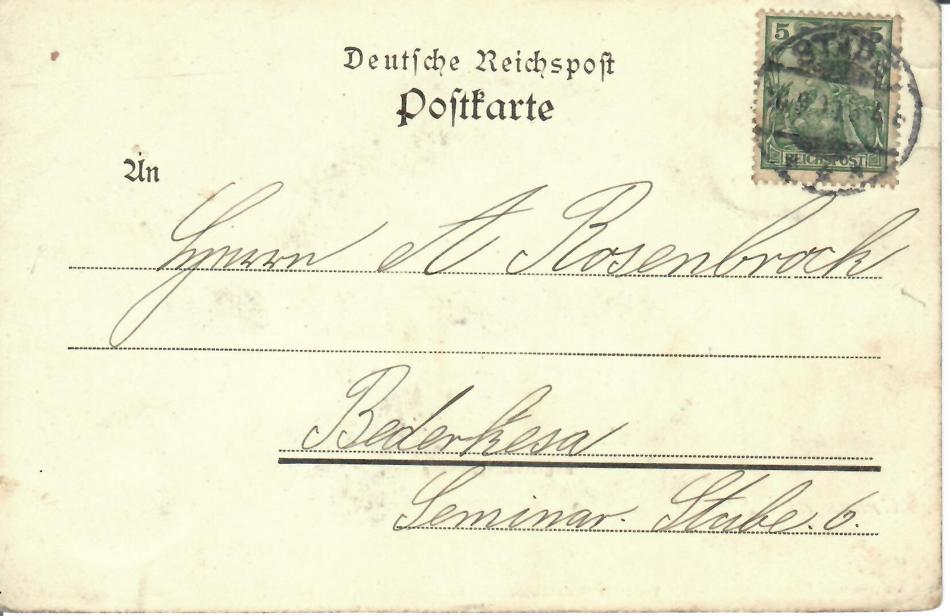 Deutsche Reichspost
Postkarte
5 5
REICHSPOST
An
Herrn A Rosenbrock
Bederkesa
Seminar. Stube. 6.